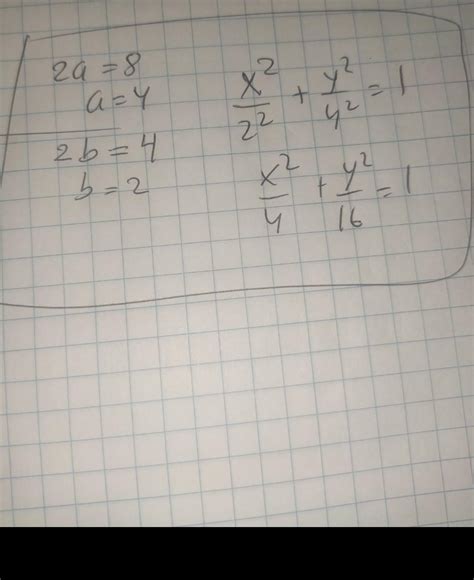 2a = 8
a = 4
2b = 4
b = 2
x²/2² + y²/4² = 1
x²/4 + y²/16 = 1